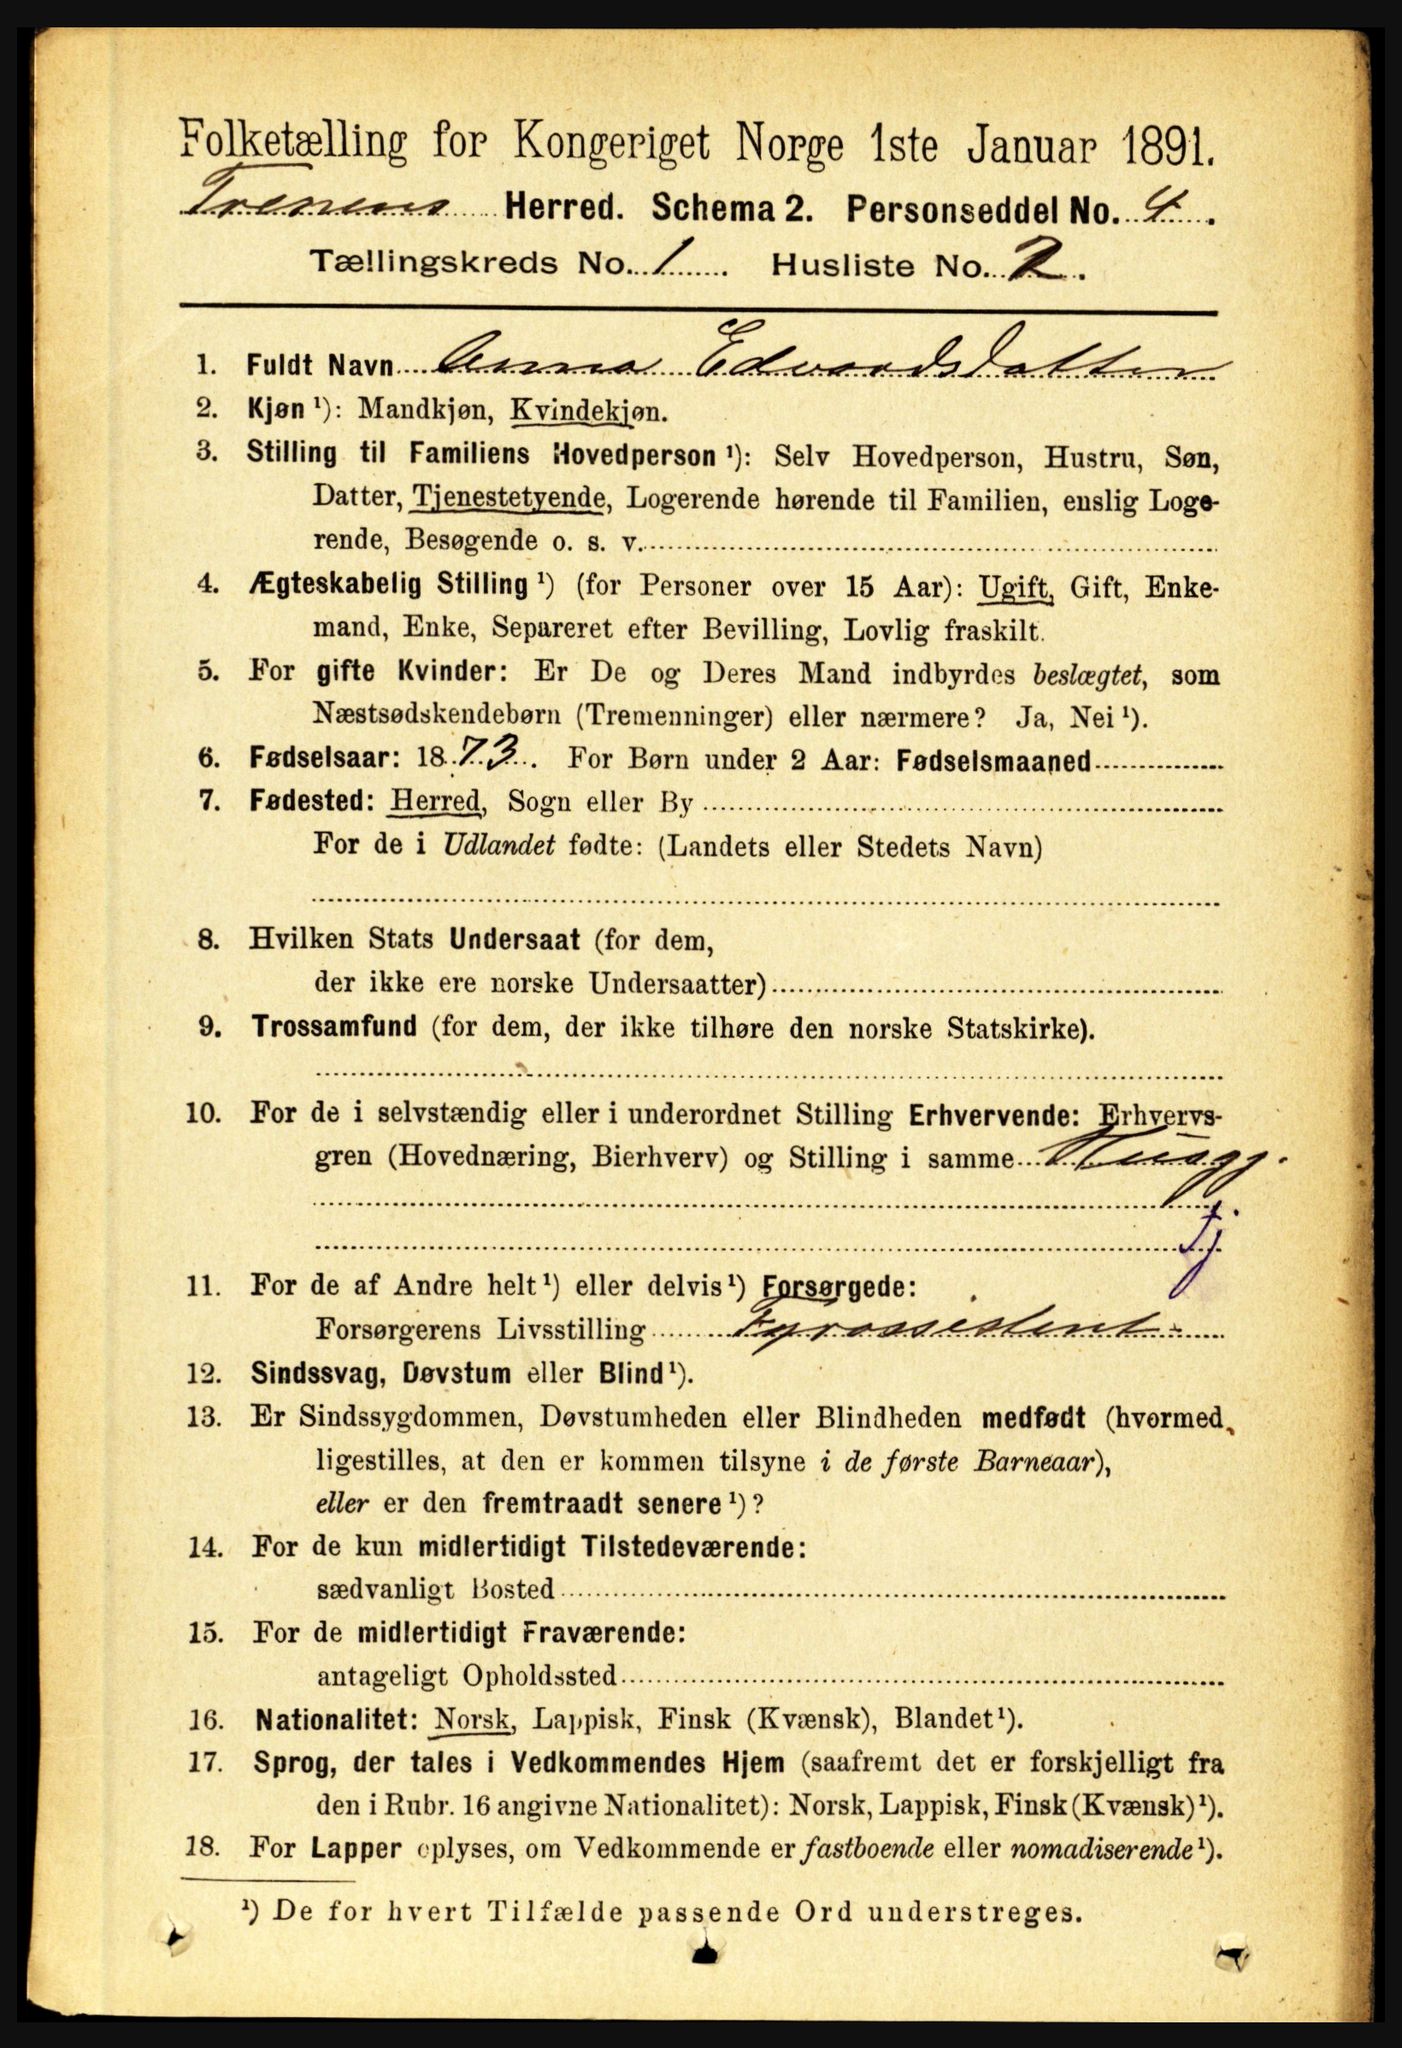 Folketælling for Kongeriget Norge 1ste Januar 1891.
Trenens Herred. Schema 2. Personseddel No. 4.
Tællingskreds No. 1. Husliste No. 2.
1. Fuldt Navn Anna Edvardsdatter
2. Kjøn ¹): Mandkjøn, Kvindekjøn.
3. Stilling til Familiens Hovedperson ¹): Selv Hovedperson, Hustru, Søn,
Datter, Tjenestetyende, Logerende hørende til Familien, enslig Loge-
rende, Besøgende o. s. v.
4. Ægteskabelig Stilling ¹) (for Personer over 15 Aar): Ugift, Gift, Enke-
mand, Enke, Separeret efter Bevilling, Lovlig fraskilt.
5. For gifte Kvinder: Er De og Deres Mand indbyrdes beslægtet, som
Næstsødskendebørn (Tremenninger) eller nærmere? Ja, Nei ¹).
6. Fødselsaar: 1873. For Børn under 2 Aar: Fødselsmaaned
7. Fødested: Herred, Sogn eller By
For de i Udlandet fødte: (Landets eller Stedets Navn)
8. Hvilken Stats Undersaat (for dem,
der ikke ere norske Undersaatter)
9. Trossamfund (for dem, der ikke tilhøre den norske Statskirke).
10. For de i selvstændig eller i underordnet Stilling Erhvervende: Erhvervs-
gren (Hovednæring, Bierhverv) og Stilling i samme Husgj.
Tj.
11. For de af Andre helt ¹) eller delvis ¹) Forsørgede:
Forsørgerens Livsstilling Fyrassistent
12. Sindssvag, Døvstum eller Blind ¹).
13. Er Sindssygdommen, Døvstumheden eller Blindheden medfødt (hvormed
ligestilles, at den er kommen tilsyne i de første Barneaar),
eller er den fremtraadt senere ¹)?
14. For de kun midlertidigt Tilstedeværende:
sædvanligt Bosted
15. For de midlertidigt Fraværende:
antageligt Opholdssted
16. Nationalitet: Norsk, Lappisk, Finsk (Kvænsk), Blandet ¹).
17. Sprog, der tales i Vedkommendes Hjem (saafremt det er forskjelligt fra
den i Rubr. 16 angivne Nationalitet): Norsk, Lappisk, Finsk (Kvænsk) ¹).
18. For Lapper oplyses, om Vedkommende er fastboende eller nomadiserende ¹).
¹) De for hvert Tilfælde passende Ord understreges.